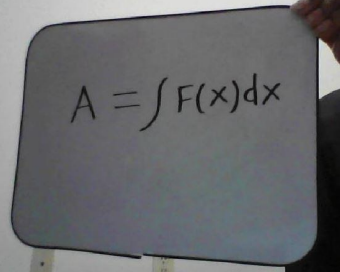 A = ∫ F(x)dx